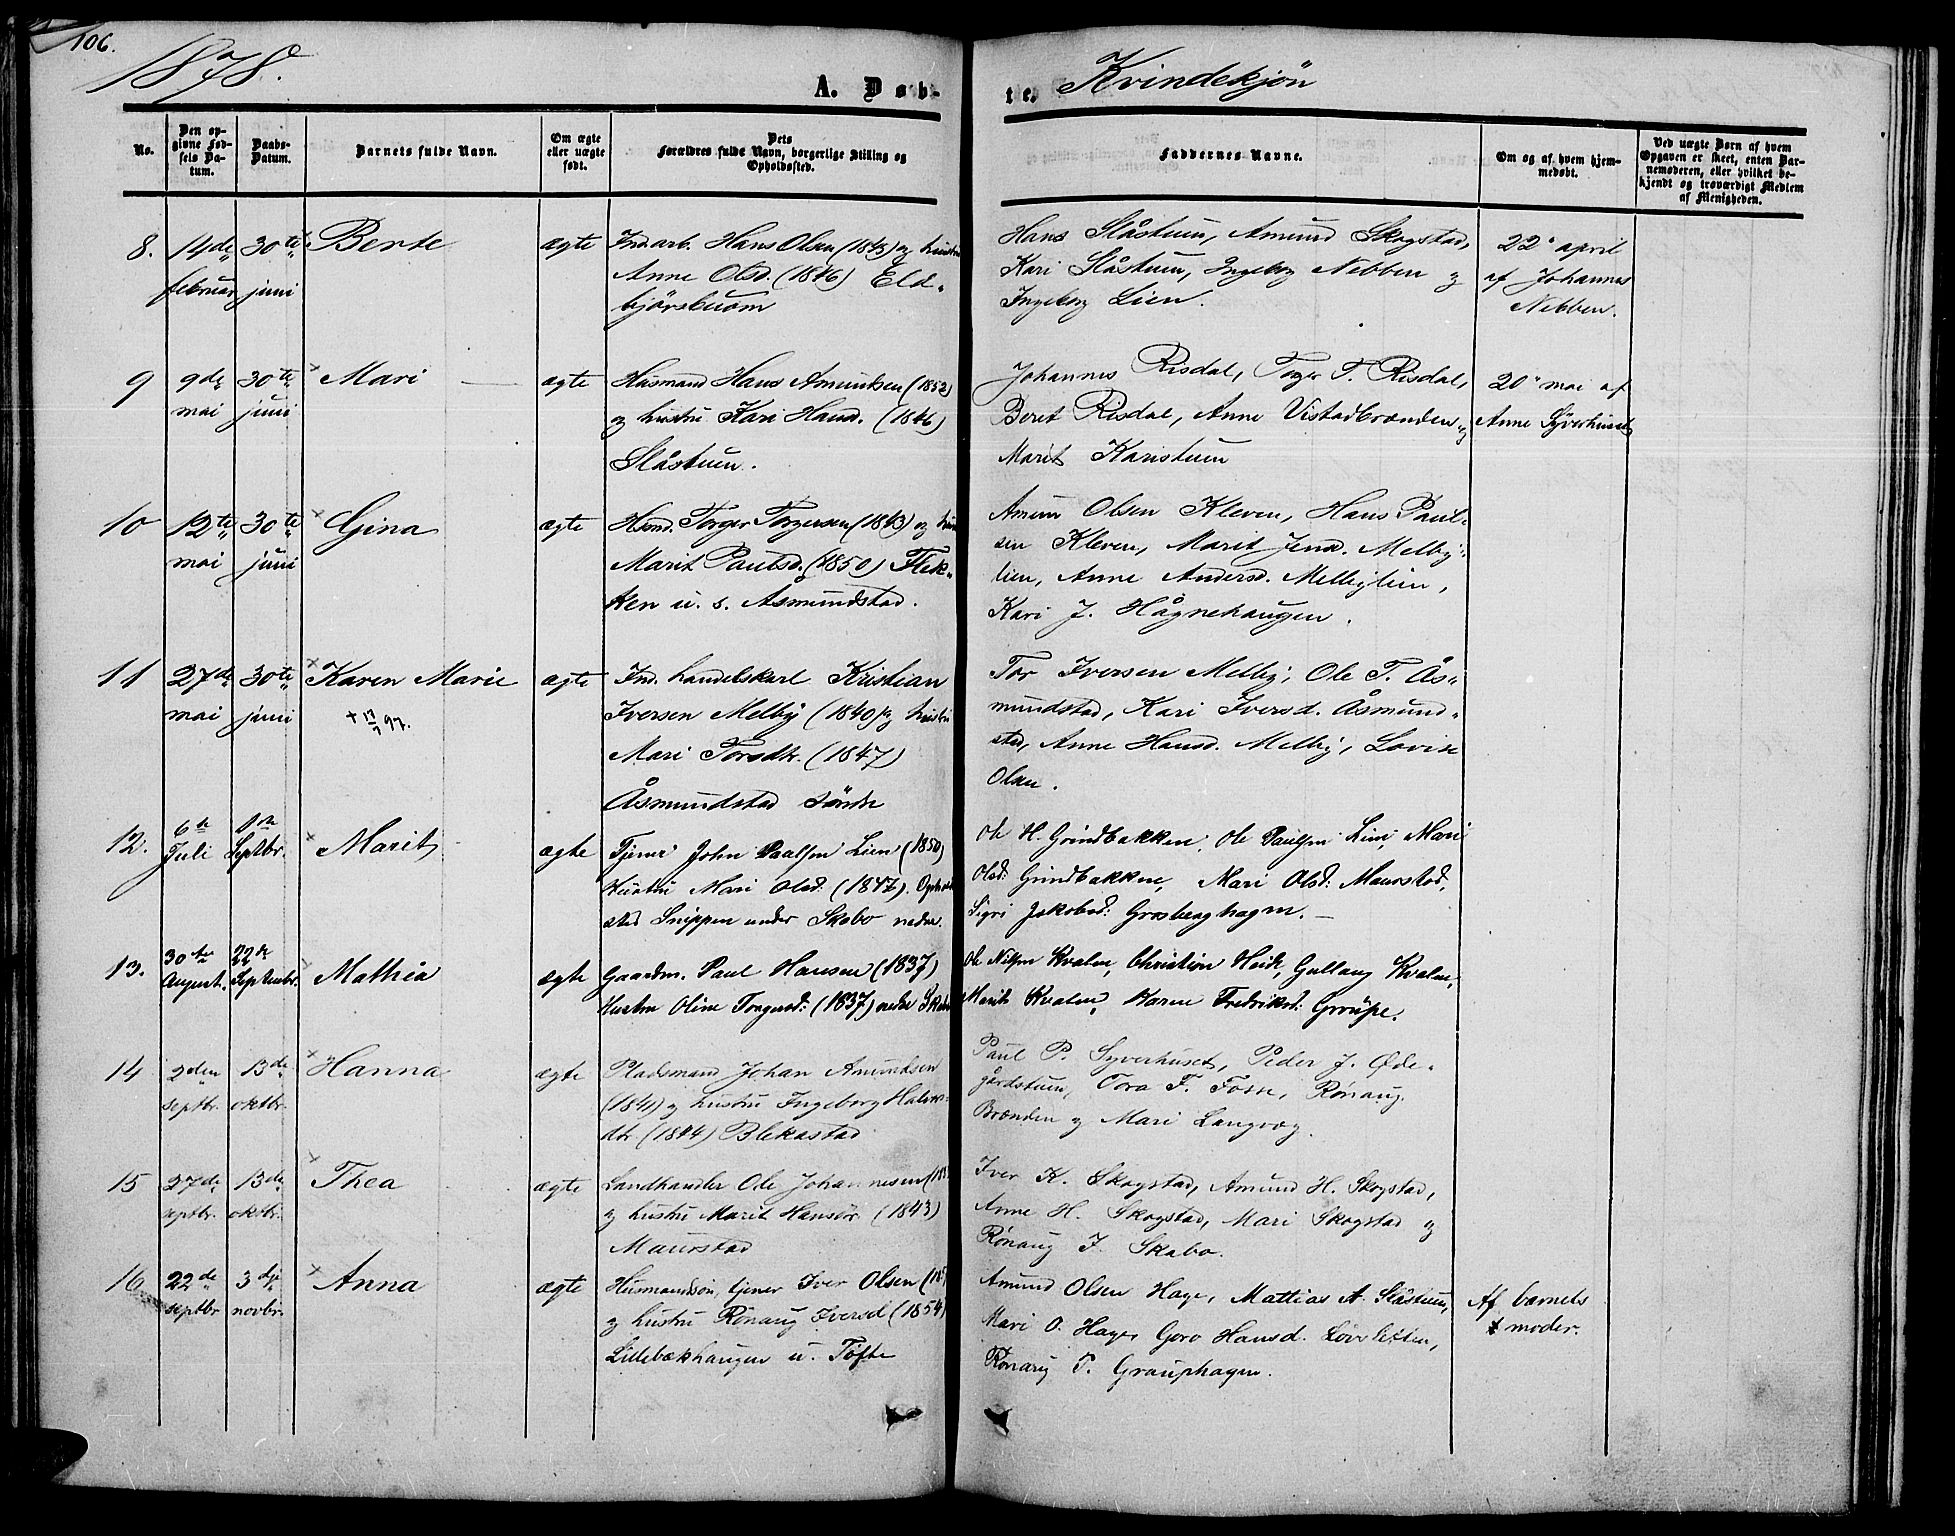 106.
1878.
A. Døb-
te.
Kvindekjön
No.
Den op-
givne Fød-
sels Da-
tum.
Daabs-
Datum.
Barnets fulde Navn.
Om ægte
eller uægte
født.
Dets
Forældres fulde Navn, borgerlige Stilling og
Opholdssted.
Faddernes Navne.
Om og af hvem hjem-
medøbt.
Ved uægte Børn af hvem
Opgaven er skeet, enten Bar-
nemoderen, eller hvilket be-
kjendt og troværdigt Medlem
af Menigheden.
8. 14de februar
30te juni
Bente
ægte
Indarb. Hans Olsen (1843) og hustru
Anne Olsd. (1846) Eld-
björstuom
Hans Slåstuen, Amund Skogstad,
Kari Slåstuen, Ingeborg Nebben og
Ingeborg Lien.
22 april
af Johannes
Nebben.
9 9de mai
30te juni
Mari
ægte
Husmand Hans Amundsen (1852)
og hustru Kari Hansd. (1846)
Slåstuen.
Johannes Risdal, Torger T. Risdal,
Beret Risdal, Anne Vistadbrænden og
Marit Karistuen
20 mai af
Anne Syverhuset
10 12te mai
30te juni
Gina
ægte
Hsmd. Torger Torgersen (1843) og hustru
Marit Paulsd. (1850) Flek-
ken u. s. Åsmundstad.
Amun Olsen Kleven, Hans Paul-
sen Kleven, Marit Jensd. Melby-
lien, Anne Andersd. Melbylien,
Kari J. Hågnehaugen.
11 27de mai
30te juni
Karen Marie
+ 17/7 97.
ægte
Ind. handelskarl Kristian
Iversen Melby (1840) og hustru
Mari Torsdtr. (1847)
Åsmundstad söndre
Tor Iversen Melby, Ole T. Ås-
mundstad, Kari Iversd. Åsmund-
stad, Anne Hansd. Melby, Lovise
Olsen.
12. 6te Juli
1ste Septbr.
Marit
ægte
Tjener John Paulsen Lien (1850)
Hustru Mari Olsd. (1847). Ophold-
sted Snippen under Skabo nedre.
Ole H. Grindbakken, Ole Paulsen Lien, Mari
Olsd: Grindbakken, Mari Olsd: Maurstad,
Sigri Jakobsd: Grosberghagen.
13. 30te August.
22de Septembr.
Mathea
ægte
Gaardm. Paul Hansen (1837)
Hustru Oline Torgersd: (1837) nedre Skabo
Ole Nilsen Kvalen, Christian Heide, Gullaug Kvalen,
Marit Kvalen, Karen Fredriksd: Graupe.
14 2den septbr.
13de oktbr.
Hanna
ægte
Pladsmand Johan Amundsen
(1841) og hustru Ingeborg Halvors-
dtr (1844) Blekastad
Paul P. Syverhuset, Peder J. Øde-
gårdstuen, Tora T. Fosse, Rönaug
Brænden og Mari Langvæg.
15 27de septbr.
13de oktbr.
Thea
ægte
Landhandler Ole Johannesen
og hustru Marit Hansdr (1843)
Maurstad
Iver K. Skogstad, Amund H. Skogstad,
Anne H. Skogstad, Mari Skogstad og
Rönaug I. Skabo.
16 22de septbr
3dje novbr.
Anna
ægte
Husmandssön, tjener Iver Olsen
og hustru Rönaug Iversd (1854)
Lillebækhaugen u. Töfte
Amund Olsen Hage, Mattias A. Slåstuen,
Mari O. Hage, Goro Hansd.
Rönaug P. Grauphagen.
Af barnets
moder.